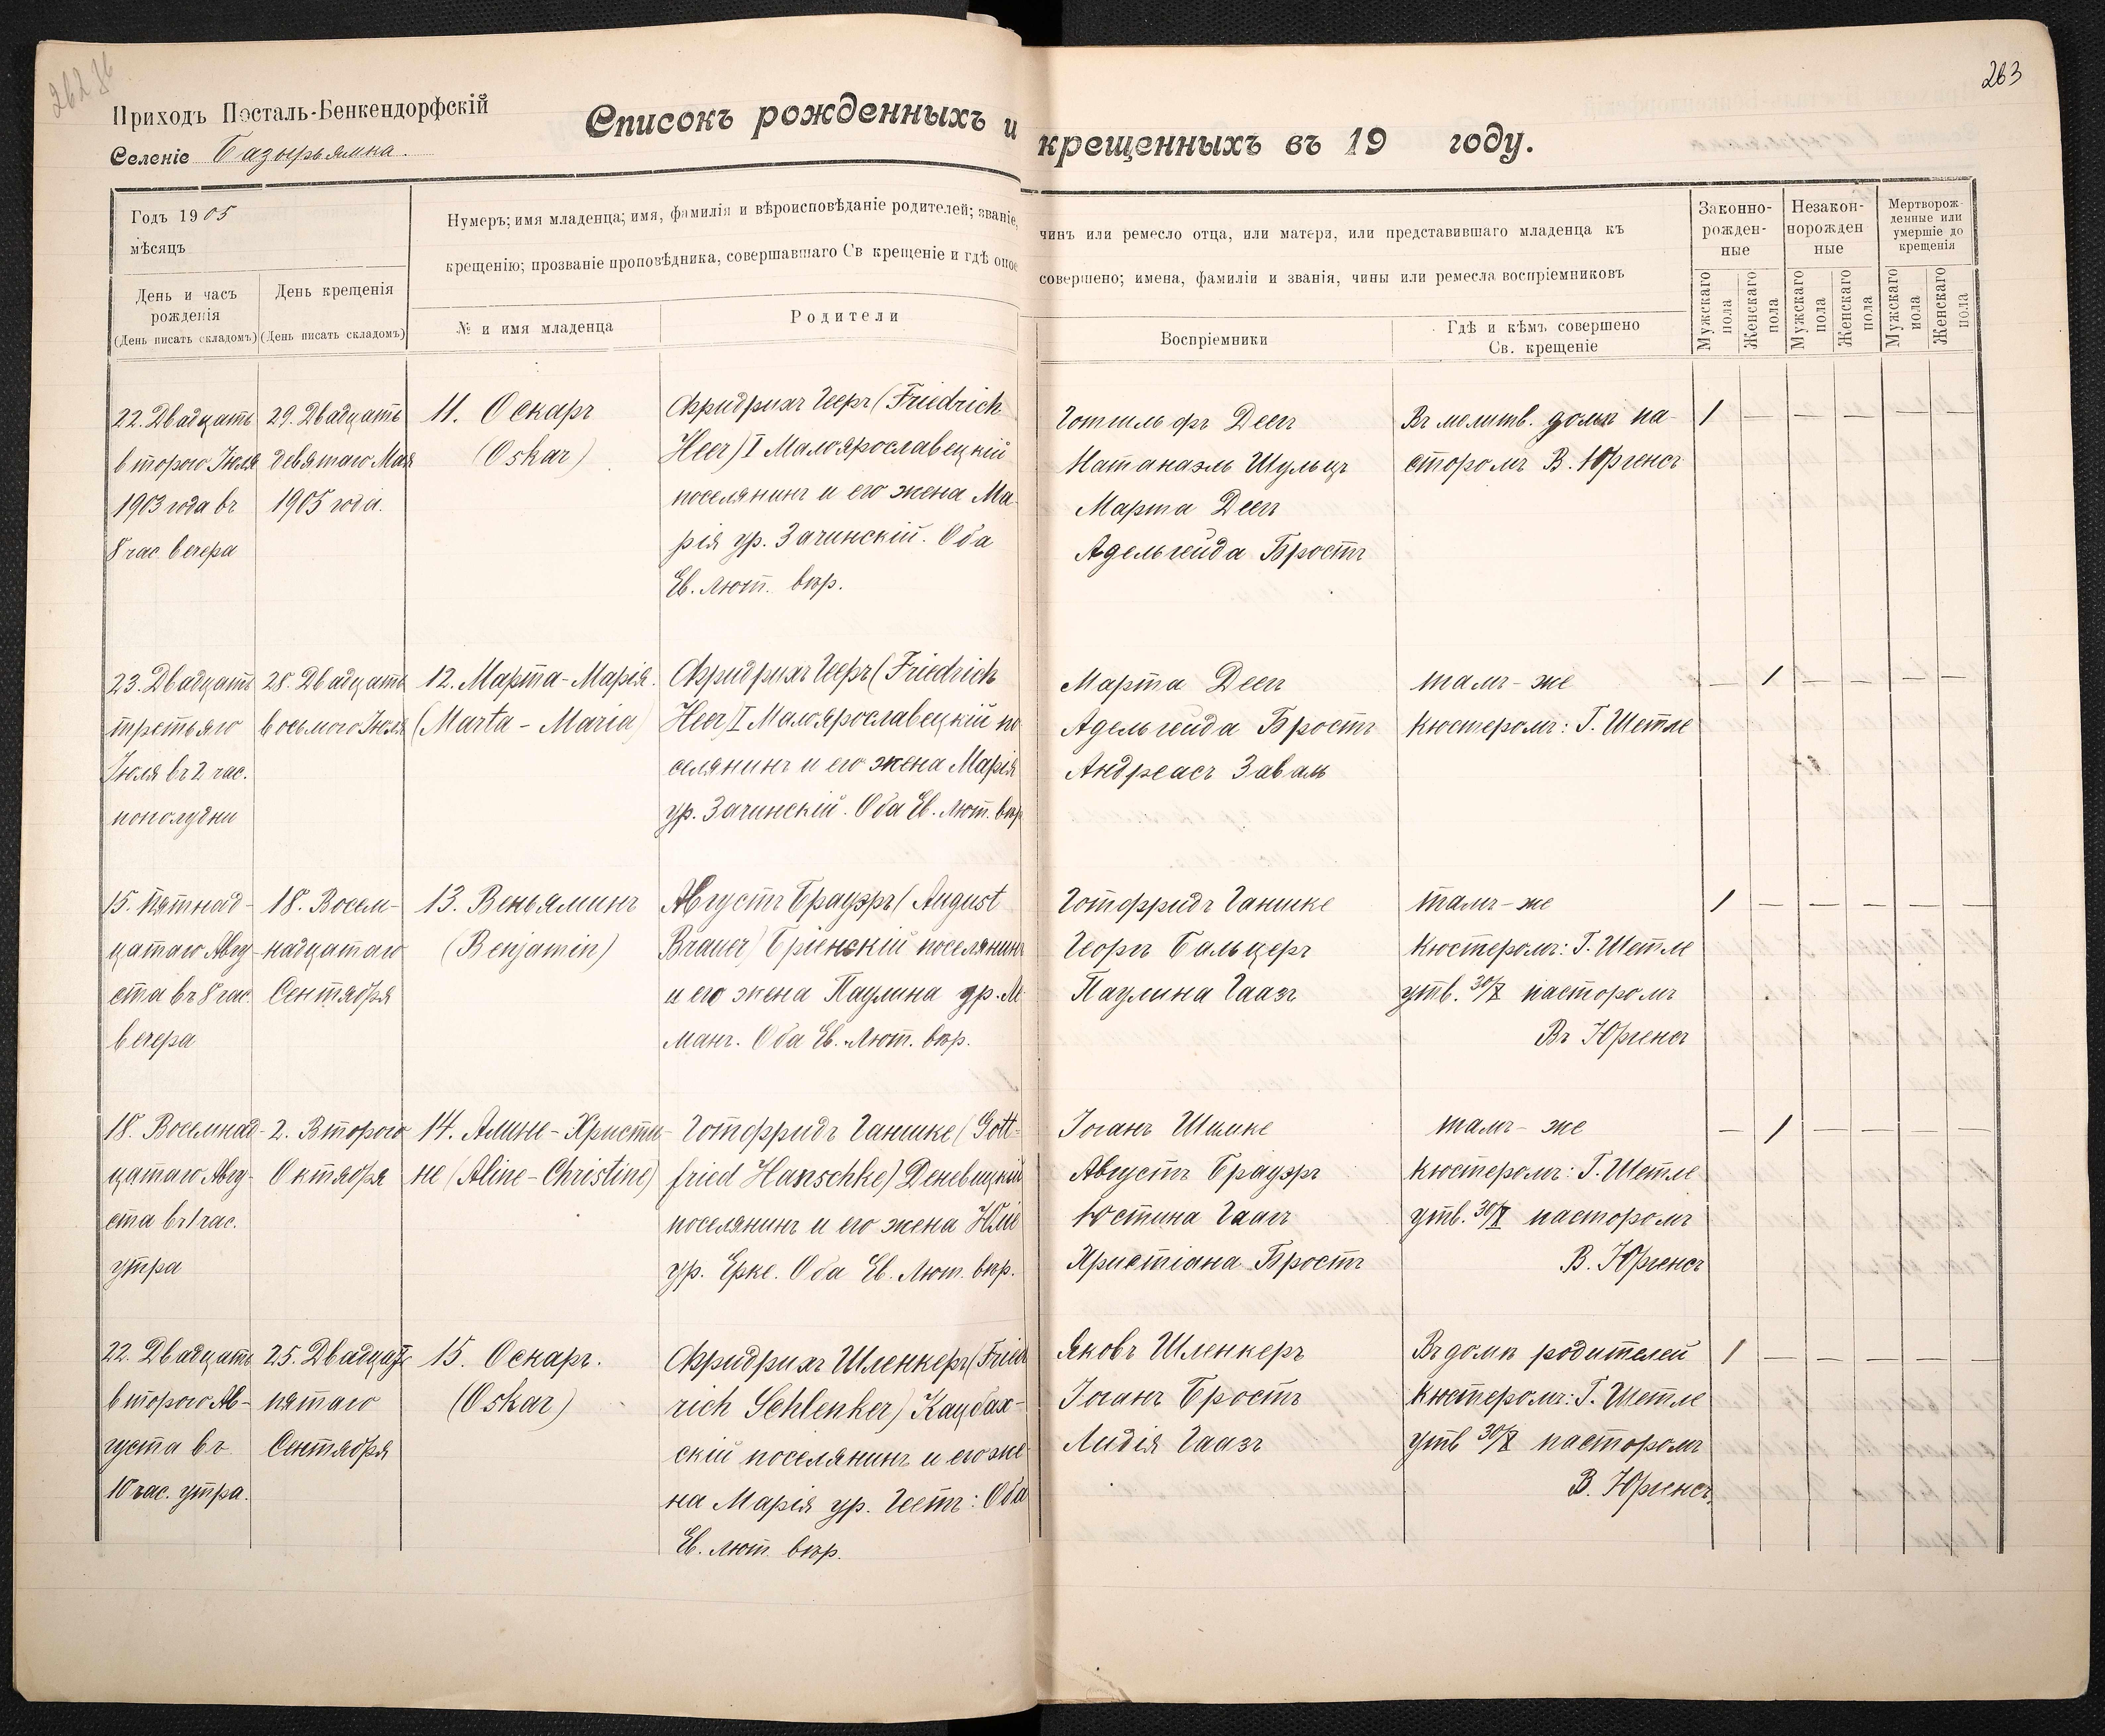 262 об
263
Приходъ Посталь-Бенкендорфскій
Селеніе Базырьямка.
Списокъ рожденныхъ и крещенныхъ въ 19 году.
Годъ 1905
мѣсяцъ
День и часъ рожденія
(День писать складомъ)
День крещенія
(День писать складомъ)
Нумеръ; имя младенца; имя, фамилія и вѣроисповѣданіе родителей; званіе, чинъ или ремесло отца, или матери, или представившаго младенца къ
крещенію; прозваніе проповѣдника, совершавшаго Св крещеніе и гдѣ оное совершено; имена, фамиліи и званія, чины или ремесла воспріемниковъ
№ и имя младенца
Родители
Воспріемники
Гдѣ и кѣмъ совершено
Св. крещеніе
Законно-
рожден-
ные
Незакон-
норожден
ные
Мертворож-
денные или
умершіе до
крещенія
Мужскаго пола
Женскаго пола
Мужскаго пола
Женскаго пола
Мужскаго пола
Женскаго пола
22. Двадцать
второго Іюля
1903 года въ
8 час вечера
29. Двадцать
девятаго Мая
1905 года.
11. Оскаръ
(Oskar)
Фридрихъ Гееръ (Friedrich
Heer) I Малоярославецкій
поселянинъ и его жена Ма-
рія ур. Зачинскій. Оба
Ев. Лют. вѣр.
Готгильфъ Деег
Натанаэль Шульцъ
Марта Деег
Адельгейда Бростъ
Въ молитв. домѣ па-
сторомъ В. Юргенсъ
1 — — — — —
23. Двадцать
третьяго
Іюля въ 2 час.
пополудни
28. Двадцать
восьмого Іюля
12. Марта-Марія.
(Marta - Maria)
Фридрихъ Гееръ (Friedrich
Heer) I Малоярославецкій по
селянинъ и его жена Марія
ур. Зачинскій. Оба Ев. Лют. вѣр
Марта Деег
Адельгейда Бростъ
Андреасъ Заваль
тамъ-же
Кюстеромъ: Г. Шетле
— 1 — — — —
15. Пятнад-
цатаго Авгу-
ста въ 8 час.
вечера
18. Восем-
надцатаго
Сентября
13. Веньяминъ
(Benjamin)
Августъ Брауэръ (August
Brauer) Бріенскій поселянинъ
и его жена Паулина ур. Ле-
манъ. Оба Ев. Лют. вѣр.
Готфридъ Ганшке
Георгъ Бальцеръ
Паулина Гаазъ
тамъ-же
Кюстеромъ: Г. Шетле
утв. 30/X пасторомъ
Въ Юргенсъ
1 — — — — —
18. Восемнад-
цатаго Авгу-
ста въ 1 час.
утра
2. Второго
Октября
14. Алине-Христи-
не (Aline-Christine)
Готфридъ Ганшке (Gott-
fried Hanschke) Деневицкій
поселянинъ и его жена
ур. Ерке. Оба Ев. Лют. вѣр.
Іоганъ Шишке
Августъ Брауэръ
Юстина Гаагъ
Христіана Бростъ
тамъ-же
Кюстеромъ: Г. Шетле
утв. 30/X пасторомъ
В. Юргенсъ
— 1 — — — —
22. Двадцать
второго Ав-
густа въ
10 час. утра.
25. Двадцать
пятаго
Сентября
15. Оскаръ.
(Oskar)
Фридрихъ Шленкеръ (Fried
rich Schlenker) Кацбах-
скій поселянинъ и его же
на Марія ур. Гетъ: Оба
Ев. Лют. вѣр.
Яковъ Шленкеръ
Іоганъ Бростъ
Лидія Гаазъ
Въ домѣ родителей
Кюстеромъ: Г. Шетле
утв 30/X пасторомъ
В. Юргенсъ.
1 — — — — —